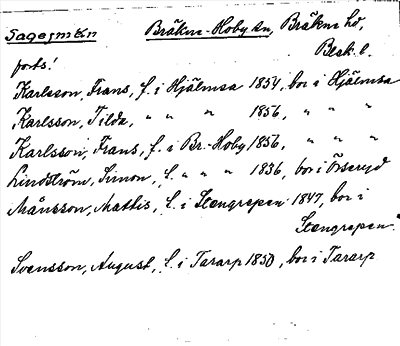 Sagesmän Bräkne-Hoby sn, Bräkne hd,
Blek. l.
forts!
Karlsson, Frans, f. i Hjälmsa 1854, bor i Hjälmsa
Karlsson, Tilda, " " " 1856, " " "
Karlsson, Frans, f. i Br.-Hoby 1856, " " "
Lindström, Simon, f. " " " 1836, bor i Örseryd
Månsson, Mathis, f. i Stengrepen 1847, bor i
Stengrepen.
Svensson, August, f. i Tararp 1850, bor i Tararp